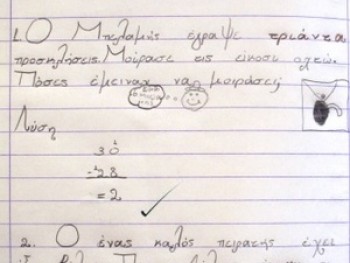 1. Ο Μπελαμής έγραψε τριάντα
προσκλήσεις. Μοίρασε τις είκοσι οχτώ.
Πόσες έμειναν να μοιράσει;
Λύση
30
-28
=2
2. Ο ένας καλός πειρατής έχει